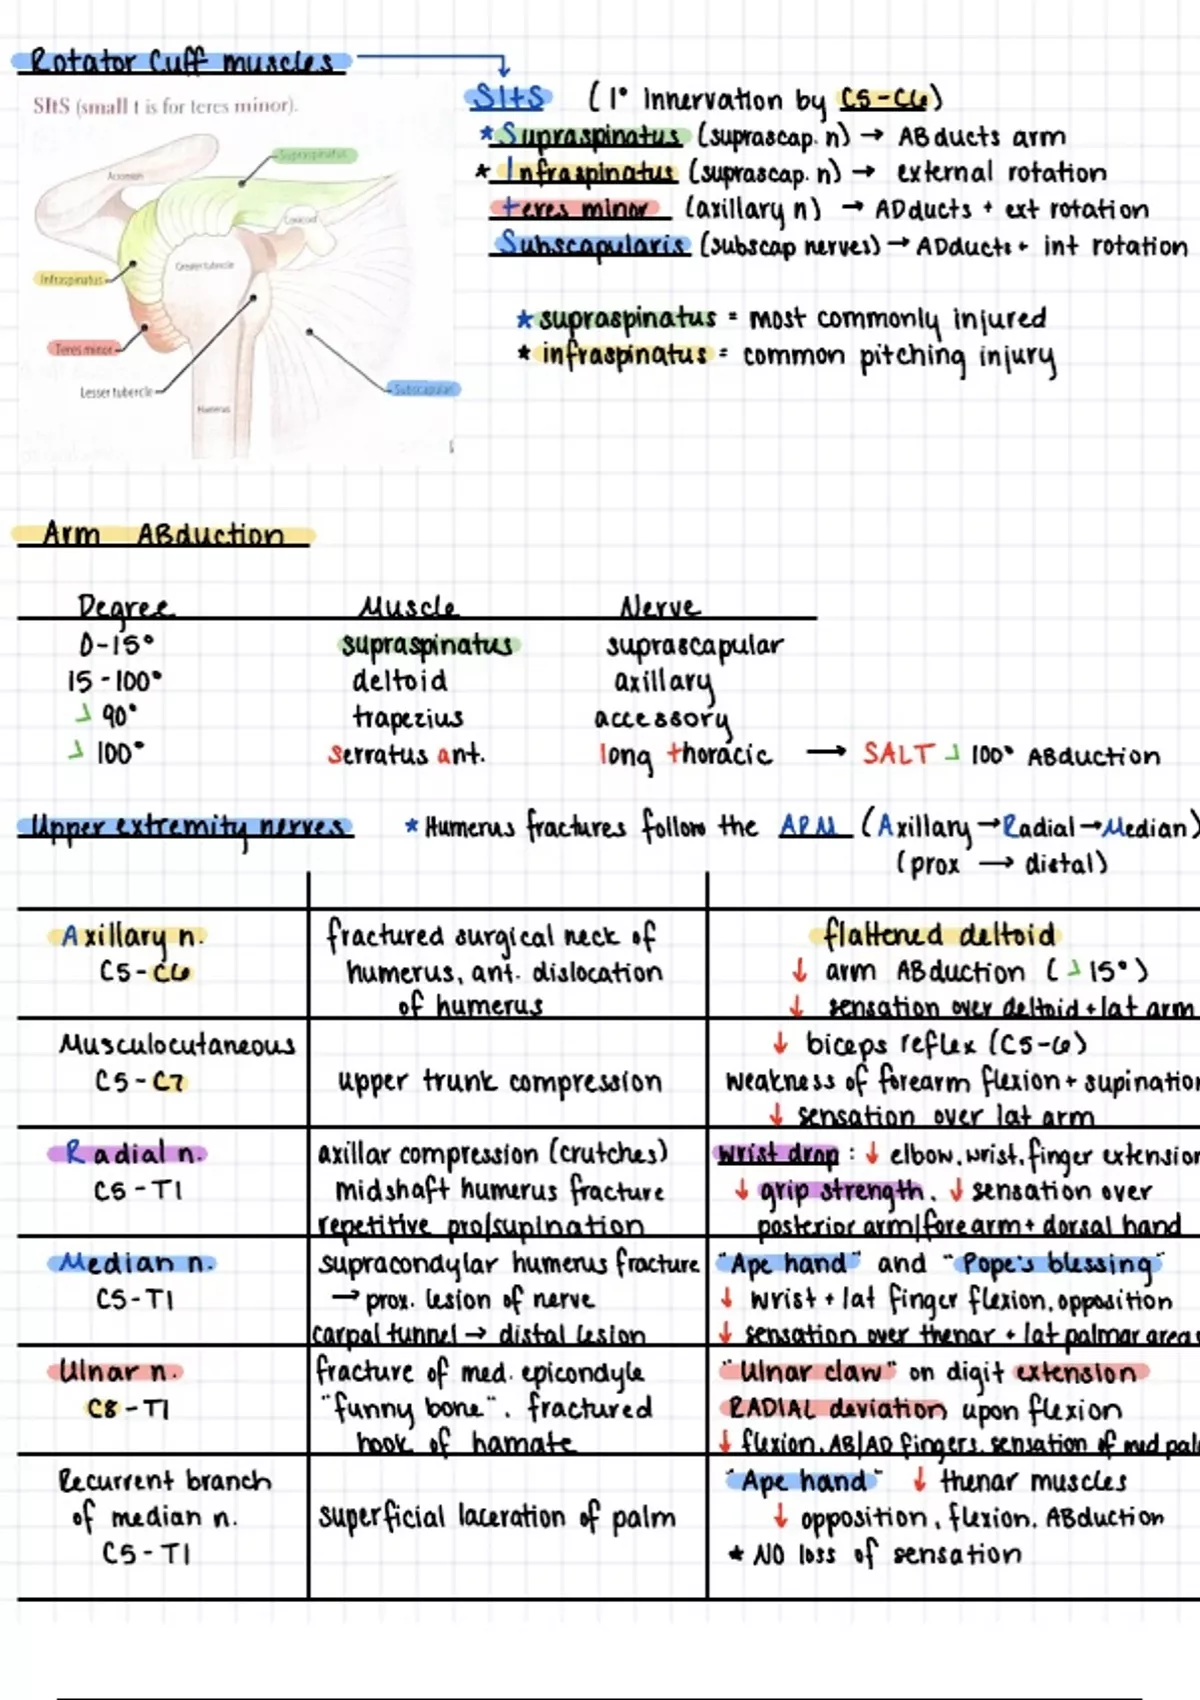 Rotator Cuff muscles
SItS (small t is for teres minor).
Acromion
Supraspinatus
Coracoid
Greater tubercle
Infraspinatus
Teres minor
Lesser tubercle
Humerus
SItS (1° Innervation by C5-C6)
* Supraspinatus (suprascap. n) → ABducts arm
* Infraspinatus (suprascap. n) → external rotation
teres minor (axillary n) → ADducts + ext rotation
Subscapularis (subscap nerves) → ADducts + int rotation
* supraspinatus = most commonly injured
* infraspinatus = common pitching injury
Arm ABduction
Degree Muscle Nerve
0-15° supraspinatus suprascapular
15-100° deltoid axillary
> 90° trapezius accessory
> 100° serratus ant. long thoracic → SALT > 100° ABduction
Upper extremity nerves * Humerus fractures follow the ARM (Axillary → Radial → Median)
(prox → distal)
Axillary n.
C5-C6
fractured surgical neck of
humerus, ant. dislocation
of humerus
flattened deltoid
↓ arm ABduction (>15°)
↓ sensation over deltoid + lat arm
Musculocutaneous
C5-C7
upper trunk compression
↓ biceps reflex (C5-6)
weakness of forearm flexion + supination
↓ sensation over lat arm
Radial n.
C5-T1
axillar compression (crutches)
midshaft humerus fracture
repetitive pro/supination
wrist drop: ↓ elbow, wrist, finger extension
↓ grip strength, ↓ sensation over
posterior arm/forearm + dorsal hand
Median n.
C5-T1
supracondylar humerus fracture
→ prox. lesion of nerve
carpal tunnel → distal lesion
"Ape hand" and "Pope's blessing"
↓ wrist + lat finger flexion, opposition
↓ sensation over thenar + lat palmar areas
Ulnar n.
C8-T1
fracture of med. epicondyle
"funny bone", fractured
hook of hamate
"Ulnar claw" on digit extension
RADIAL deviation upon flexion
↓ flexion, AB/AD fingers, sensation of med pal
Recurrent branch
of median n.
C5-T1
superficial laceration of palm
"Ape hand" ↓ thenar muscles
↓ opposition, flexion, ABduction
* NO loss of sensation